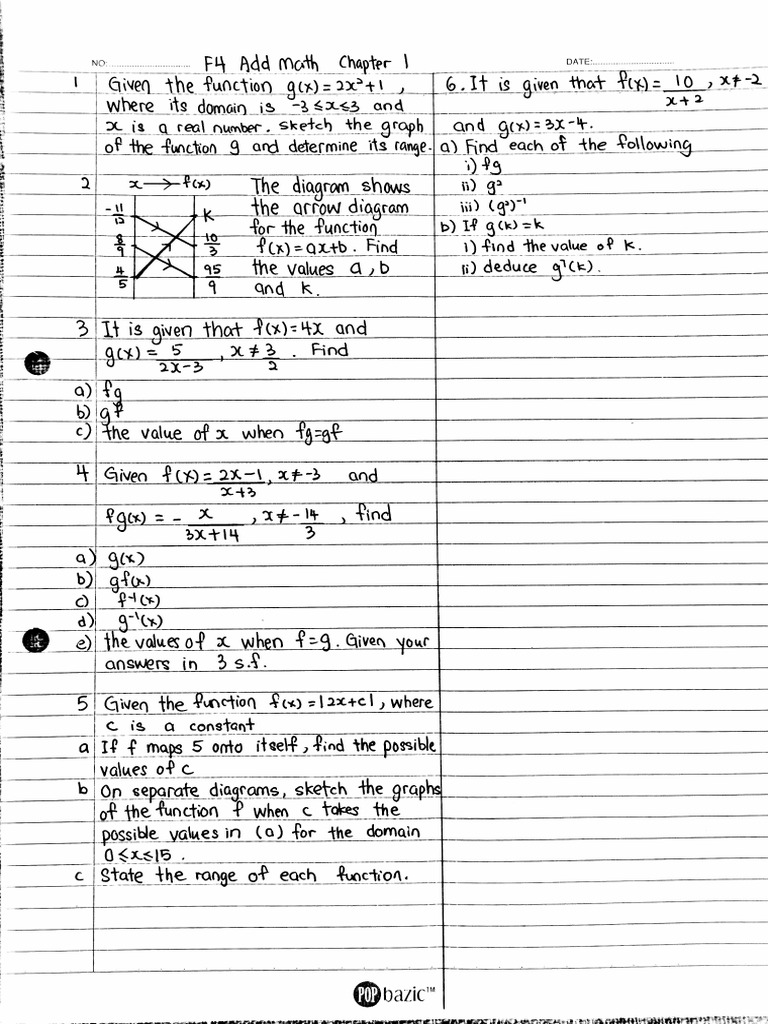 NO:
F4 Add Math Chapter 1
DATE:
1 Given the function g(x)=2x²+1,
where its domain is -3≤x≤3 and
x is a real number. sketch the graph
of the function g and determine its range.
2 x→f(x) The diagram shows
-11/12 K the arrow diagram
for the function
8/9 10/3 f(x)=ax+b. Find
4/5 95/9 the values a, b
and k.
3 It is given that f(x)=4x and
g(x)=5/(2x-3), x≠3/2. Find
a) fg
b) gf
c) the value of x when fg=gf
4 Given f(x)=(2x-1)/(x+3), x≠-3 and
fg(x)=-x/(3x+14), x≠-14/3, find
a) g(x)
b) gf(x)
c) f⁻¹(x)
d) g⁻¹(x)
e) the values of x when f=g. Given your
answers in 3 s.f.
5 Given the function f(x)=|2x+c|, where
c is a constant
a If f maps 5 onto itself, find the possible
values of c
b On separate diagrams, sketch the graphs
of the function f when c takes the
possible values in (a) for the domain
0≤x≤15.
c State the range of each function.
6. It is given that f(x)=10/(x+2), x≠-2
and g(x)=3x-4.
a) Find each of the following
i) fg
ii) g²
iii) (g²)⁻¹
b) If g(k)=k
i) find the value of k.
ii) deduce g⁷(k).
POP bazic™